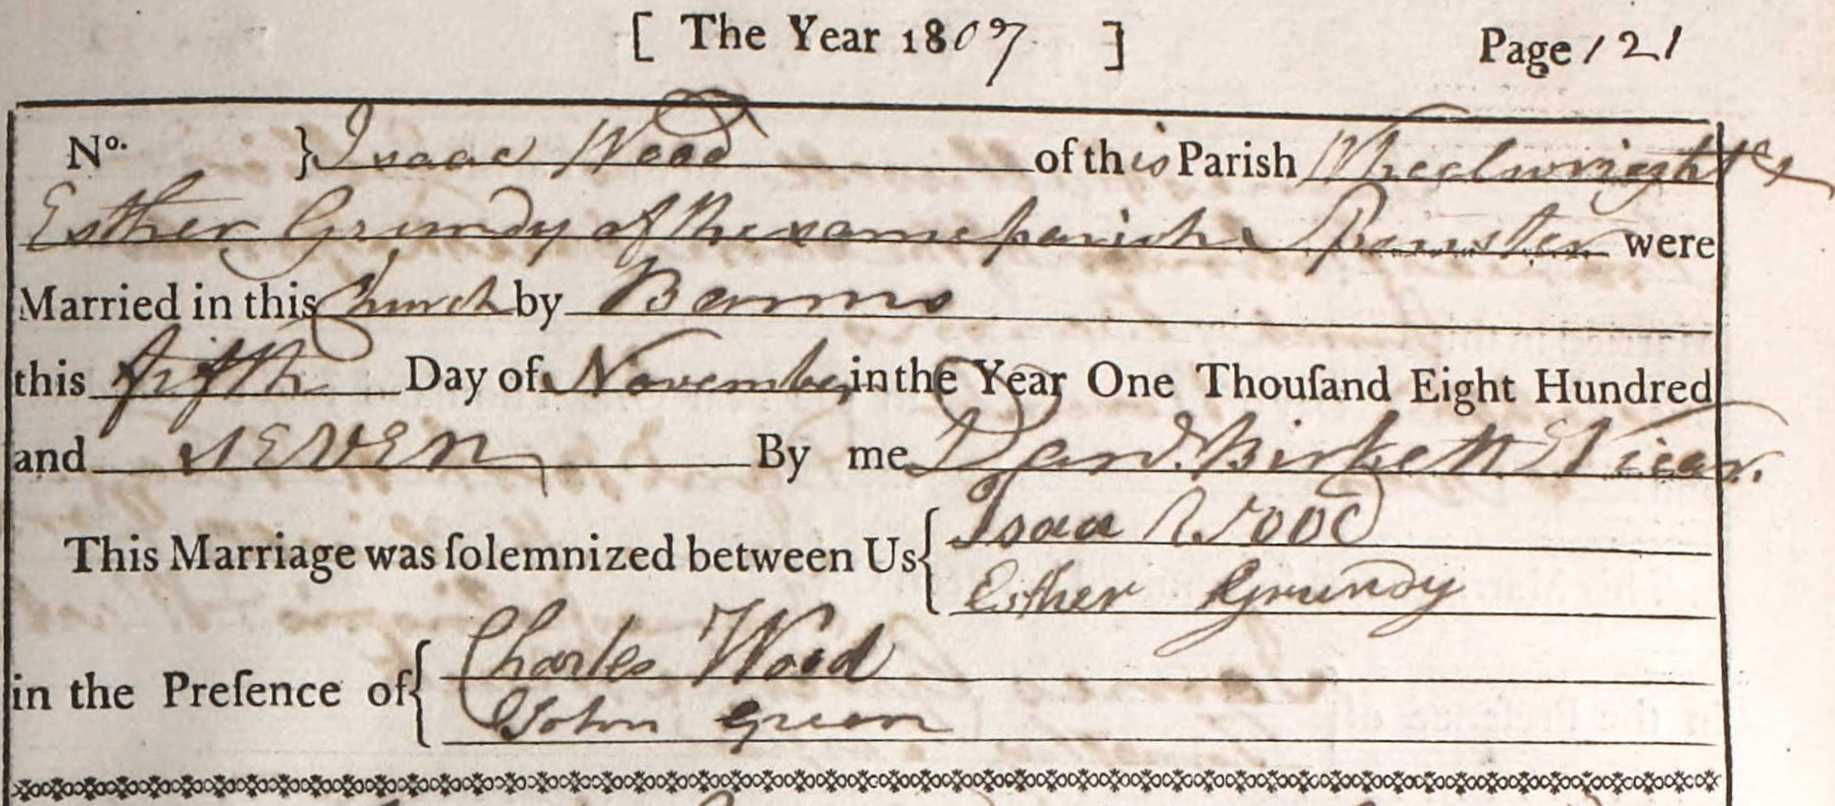 [ The Year 1807 ] Page 121
No. } Isaac Wood of this Parish Wheelwright &
Esther Grundy of the same parish Spinster were
Married in this Church by Banns
this fifth Day of November in the Year One Thouſand Eight Hundred
and seven By me Dan.d Birkett Vicar.
This Marriage was ſolemnized between Us { Isaa Wood
Esther Grundy
in the Preſence of { Charles Wood
John Green